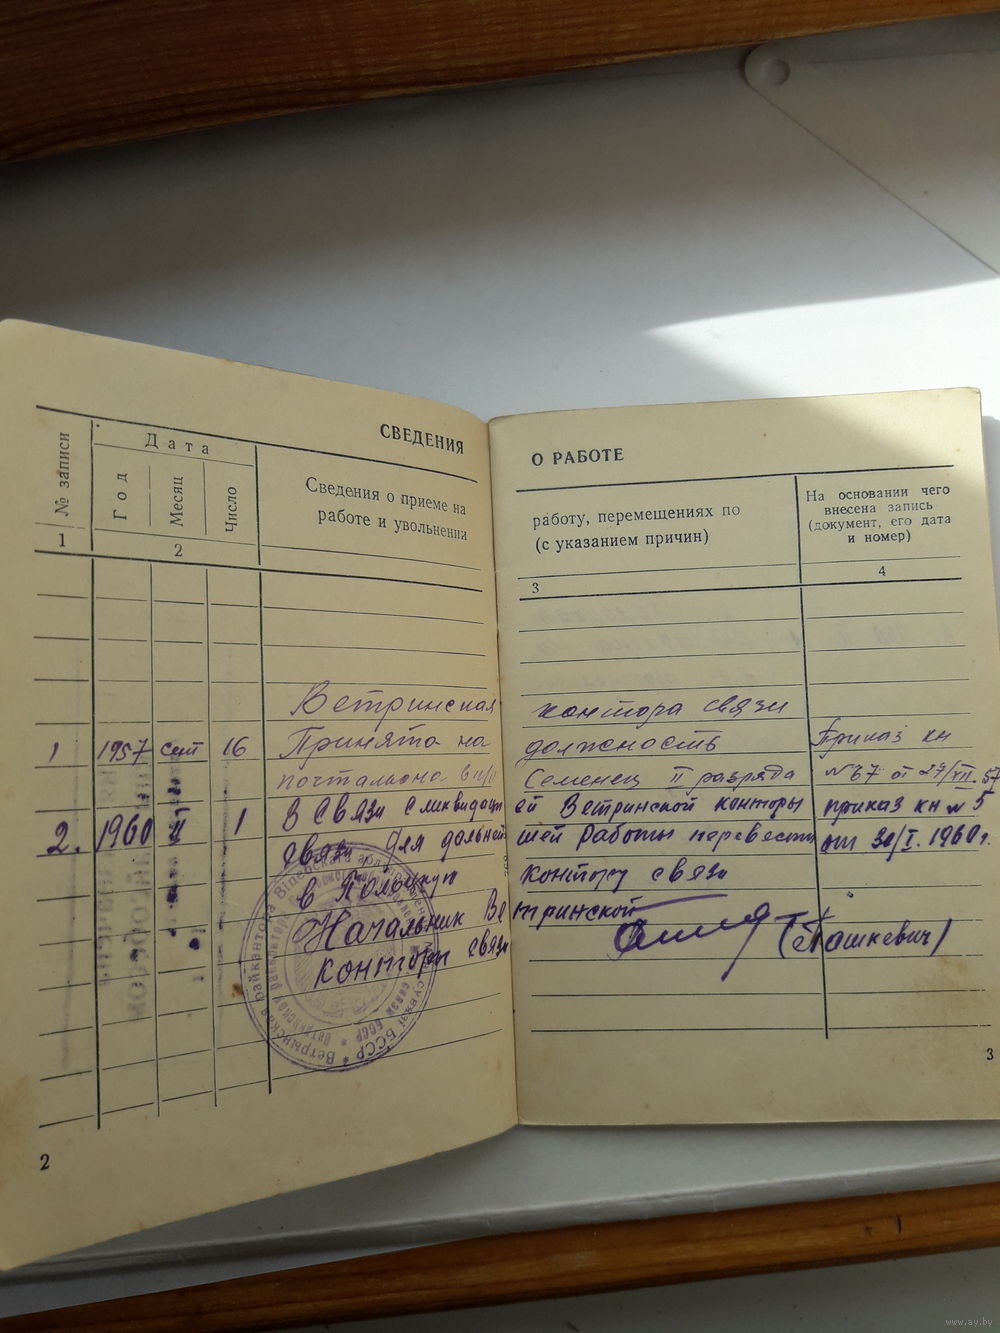 СВЕДЕНИЯ О РАБОТЕ
№ записи
Дата
Год
Месяц
Число
Сведения о приеме на работу, перемещениях по
работе и увольнении (с указанием причин)
На основании чего
внесена запись
(документ, его дата
и номер)
1
2
3
4
Ветринская контора связи
1 1957 сент 16 Принята на должность Приказ кн
почтальона в п/о Семенец II разряда №37 от 27/VII.57
2. 1960 II 1 В связи с ликвидацией Ветринской конторы приказ кн №5
связи для дальнейшей работы перевести от 30/I.1960г.
в Полоцкую контору связи
Начальник Ветринской
конторы связи (Пашкевич)
БССР
2
3
www.ay.by